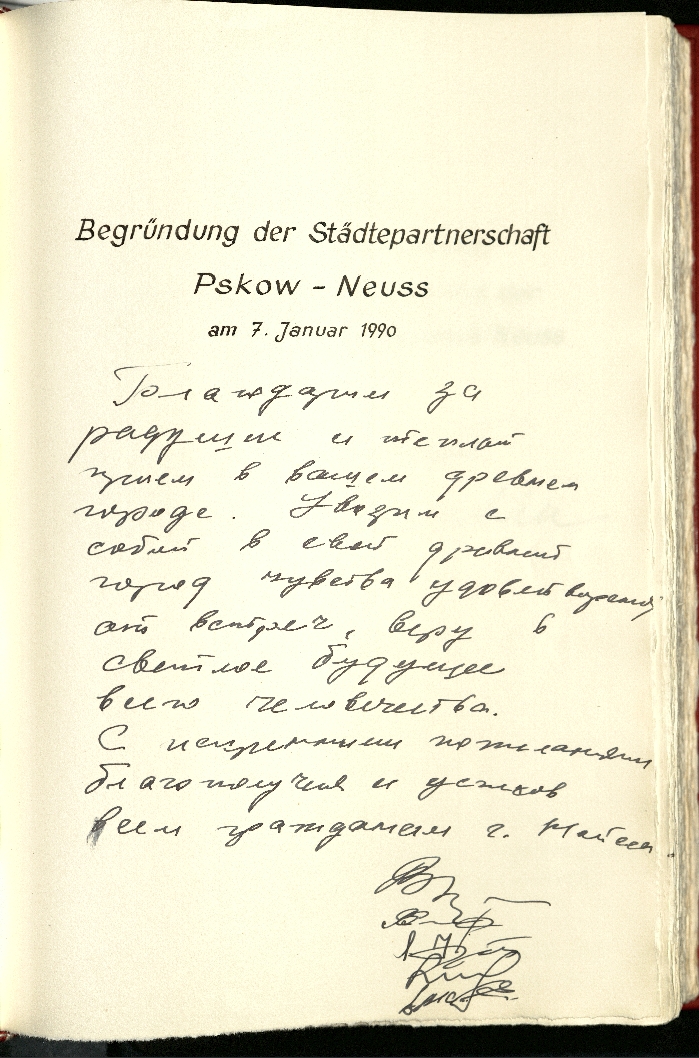 Begründung der Städtepartnerschaft
Pskow - Neuss
am 7. Januar 1990
Благодарим за
радушие и теплой
прием в вашем древнем
городе. Увозим с
собой в свой древний
город чувства удовлетворения
от встреч, веру в
светлое будущее
всего человечества.
С искренними пожеланиями
благополучия и успехов
всем гражданам г. Нойсса.